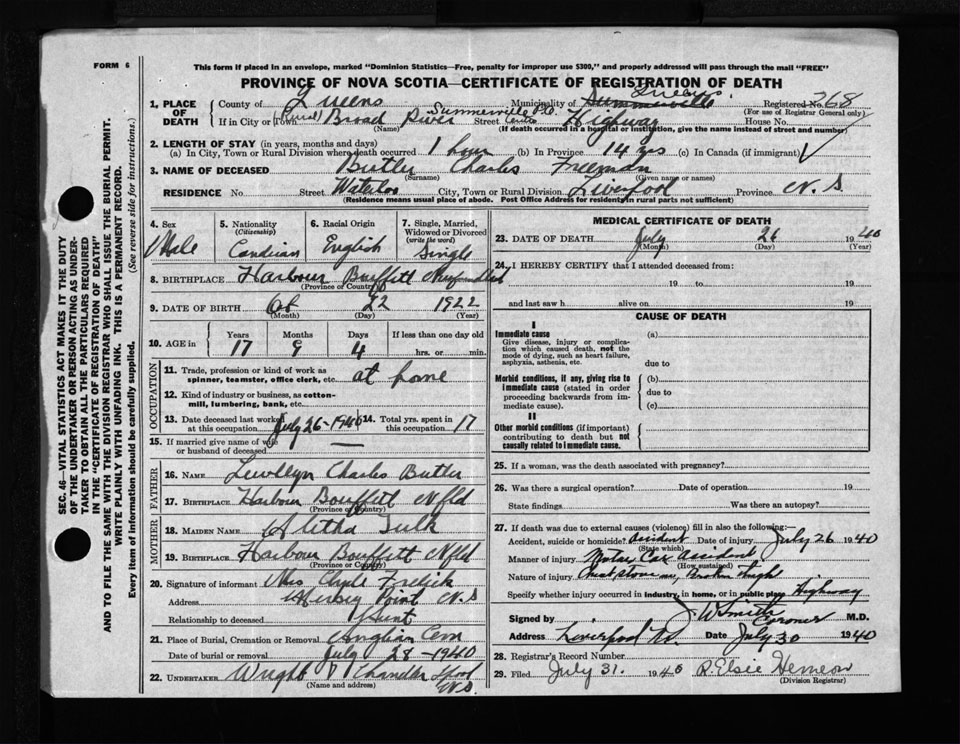 FORM 6
This form if placed in an envelope, marked "Dominion Statistics—Free, penalty for improper use $300," and properly addressed will pass through the mail "FREE"
PROVINCE OF NOVA SCOTIA—CERTIFICATE OF REGISTRATION OF DEATH
1. PLACE OF DEATH County of Queens Municipality of Summerville Queens Registered No. 268
(For use of Registrar General only)
If in City or Town (Rural) Broad River Summerville Centre P.O. Street Highway House No.
(Name) (If death occurred in a hospital or institution, give the name instead of street and number)
2. LENGTH OF STAY (in years, months and days)
(a) In City, Town or Rural Division where death occurred 1 hour (b) In Province 14 yrs (c) In Canada (if immigrant)
3. NAME OF DECEASED Butler Charles Freeman
(Surname) (Given name or names)
RESIDENCE No Street Waterloo City, Town or Rural Division Liverpool Province N.S.
(Residence means usual place of abode. Post Office Address for residents in rural parts not sufficient)
4. Sex Male
5. Nationality (Citizenship) Candian
6. Racial Origin English
7. Single, Married, Widowed or Divorced (write the word) Single
8. BIRTHPLACE Harbour Buffett
(Province or Country)
9. DATE OF BIRTH 22 1922
(Month) (Day) (Year)
10. AGE in Years 17 Months 9 Days 4 If less than one day old hrs. or min.
OCCUPATION
11. Trade, profession or kind of work as spinner, teamster, office clerk, etc. at home
12. Kind of industry or business, as cotton-mill, lumbering, bank, etc.
13. Date deceased last worked at this occupation July 26-1940 14. Total yrs. spent in this occupation 17
15. If married give name of wife or husband of deceased —
FATHER
16. NAME Lewllyn Charles Butler
17. BIRTHPLACE Harbour Bouffitt Nfld
(Province or Country)
MOTHER
18. MAIDEN NAME Aletha Tulk
19. BIRTHPLACE Harbour Bouffitt Nfld
(Province or Country)
20. Signature of informant Mrs Clyde
Address Hersey Point N.S
Relationship to deceased Aunt
21. Place of Burial, Cremation or Removal Anglian Cem
Date of burial or removal July 28-1940
22. UNDERTAKER Wright Chandler Lpool N.S.
(Name and address)
MEDICAL CERTIFICATE OF DEATH
23. DATE OF DEATH July 26 1940
(Month) (Day) (Year)
24. I HEREBY CERTIFY that I attended deceased from:
19 to 19
and last saw h alive on 19
CAUSE OF DEATH
I
Immediate cause (a)
Give disease, injury or complication which caused death, not the mode of dying, such as heart failure, asphyxia, asthenia, etc.
due to
Morbid conditions, if any, giving rise to immediate cause (stated in order proceeding backwards from immediate cause).
(b)
due to
(c)
II
Other morbid conditions (if important) contributing to death but not causally related to immediate cause.
25. If a woman, was the death associated with pregnancy?
26. Was there a surgical operation? Date of operation 19
State findings Was there an autopsy?
27. If death was due to external causes (violence) fill in also the following:—
Accident, suicide or homicide? Accident Date of injury July 26 1940
(State which)
Manner of injury Motor Car accident
(How sustained)
Nature of injury Broken thigh
Specify whether injury occurred in industry, in home, or in public place Highway
Signed by J. W Smith Coroner M.D.
Address Liverpool NS Date July 30 1940
28. Registrar's Record Number
29. Filed July 31. 1940 R. Elsie Hemeon
(Division Registrar)
SEC. 46—VITAL STATISTICS ACT MAKES IT THE DUTY
OF THE UNDERTAKER OR PERSON ACTING AS UNDER-
TAKER TO OBTAIN ALL THE PARTICULARS REQUIRED
IN THE "CERTIFICATE OF REGISTRATION OF DEATH"
AND TO FILE THE SAME WITH THE DIVISION REGISTRAR WHO SHALL ISSUE THE BURIAL PERMIT.
WRITE PLAINLY WITH UNFADING INK. THIS IS A PERMANENT RECORD.
Every item of information should be carefully supplied. (See reverse side for instructions.)